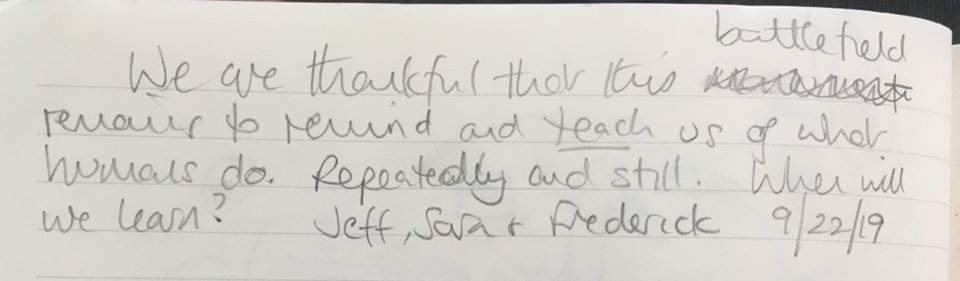 battlefield
We are thankful that this
remains to remind and teach us of what
humans do. Repeatedly and still. When will
we learn? Jeff, Sara + Frederick 9/22/19